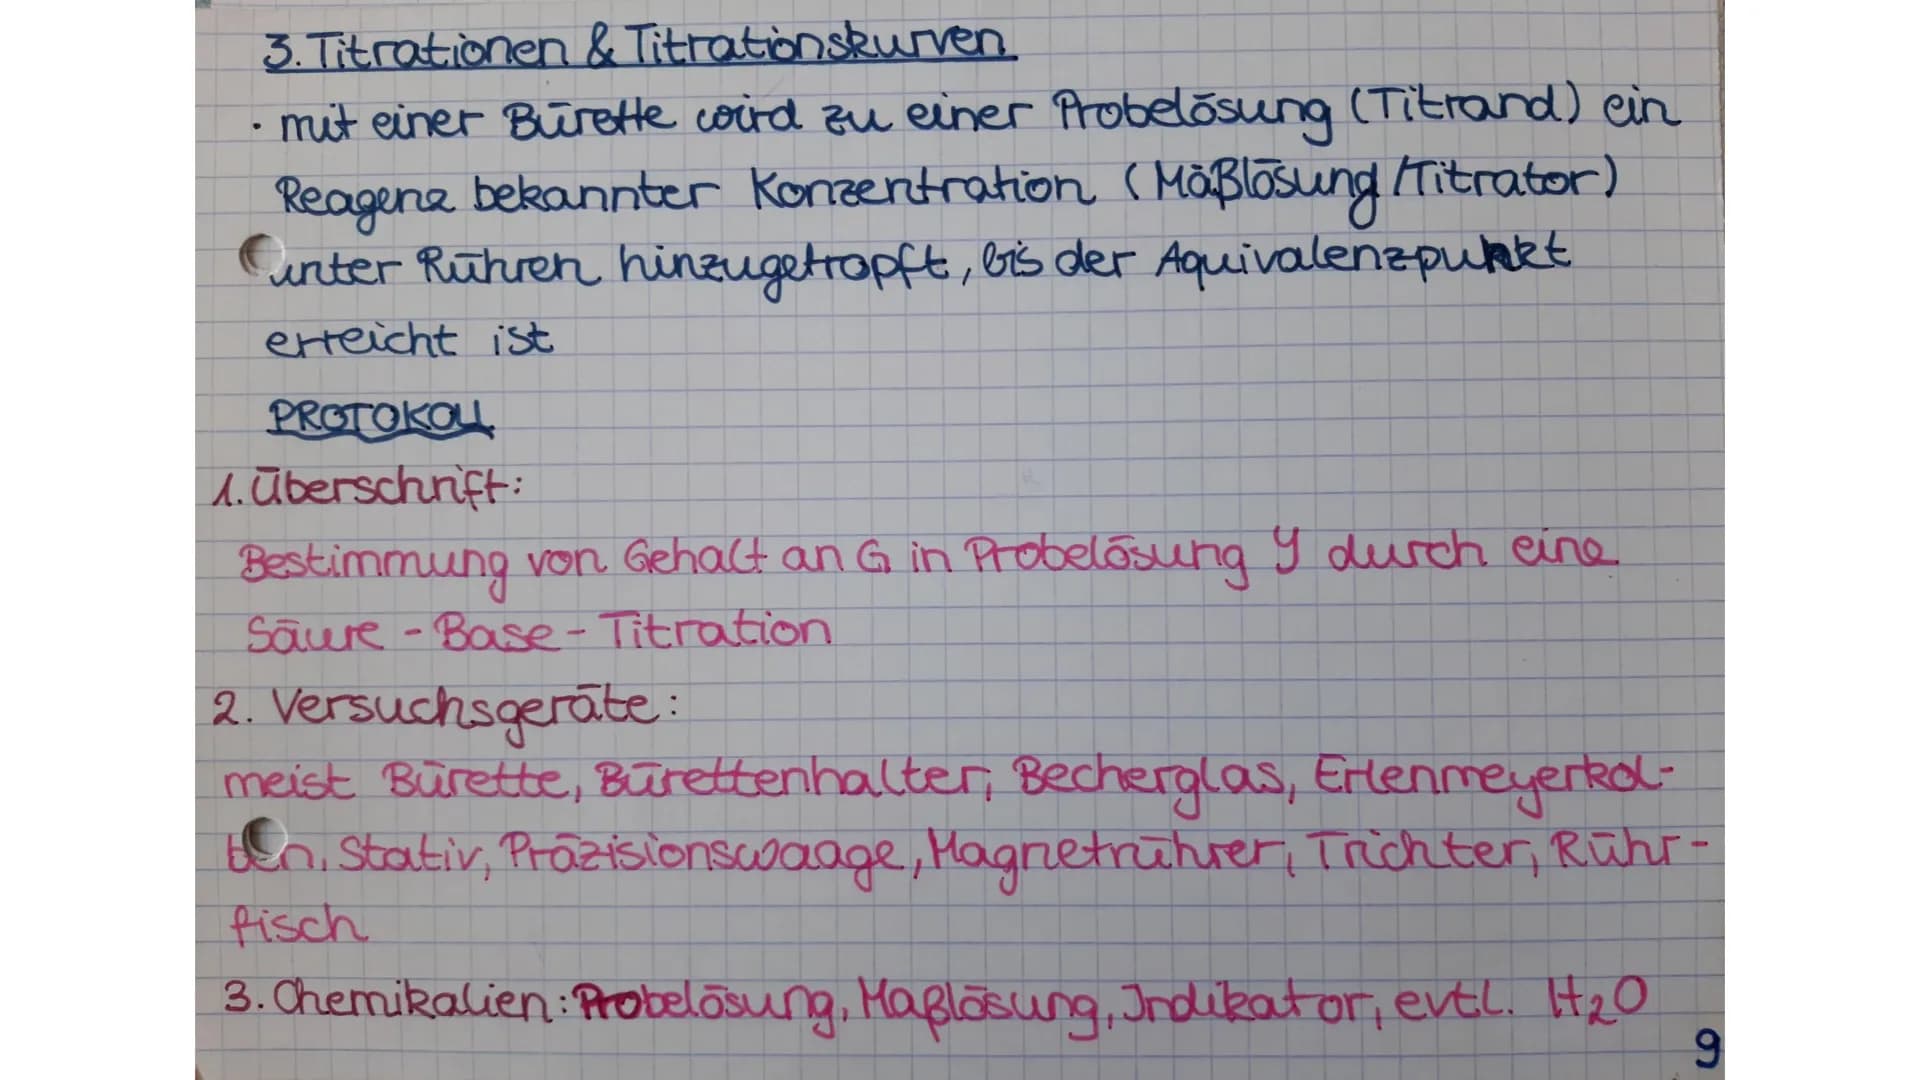 3. Titrationen & Titrationskurven
• mit einer Bürette wird zu einer Probelösung (Titrand) ein
Reagenz bekannter Konzentration (Mäßlösung/Titrator)
unter Rühren hinzugetropft, bis der Äquivalenzpunkt
erreicht ist
PROTOKOLL
1. Überschrift:
Bestimmung von Gehalt an G in Probelösung Y durch eine
Säure-Base-Titration
2. Versuchsgeräte:
meist Bürette, Bürettenhalter, Becherglas, Erlenmeyerkol-
ben, Stativ, Präzisionswaage, Magnetrührer, Trichter, Rühr-
fisch
3. Chemikalien: Probelösung, Maßlösung, Indikator, evtl. H₂O
9